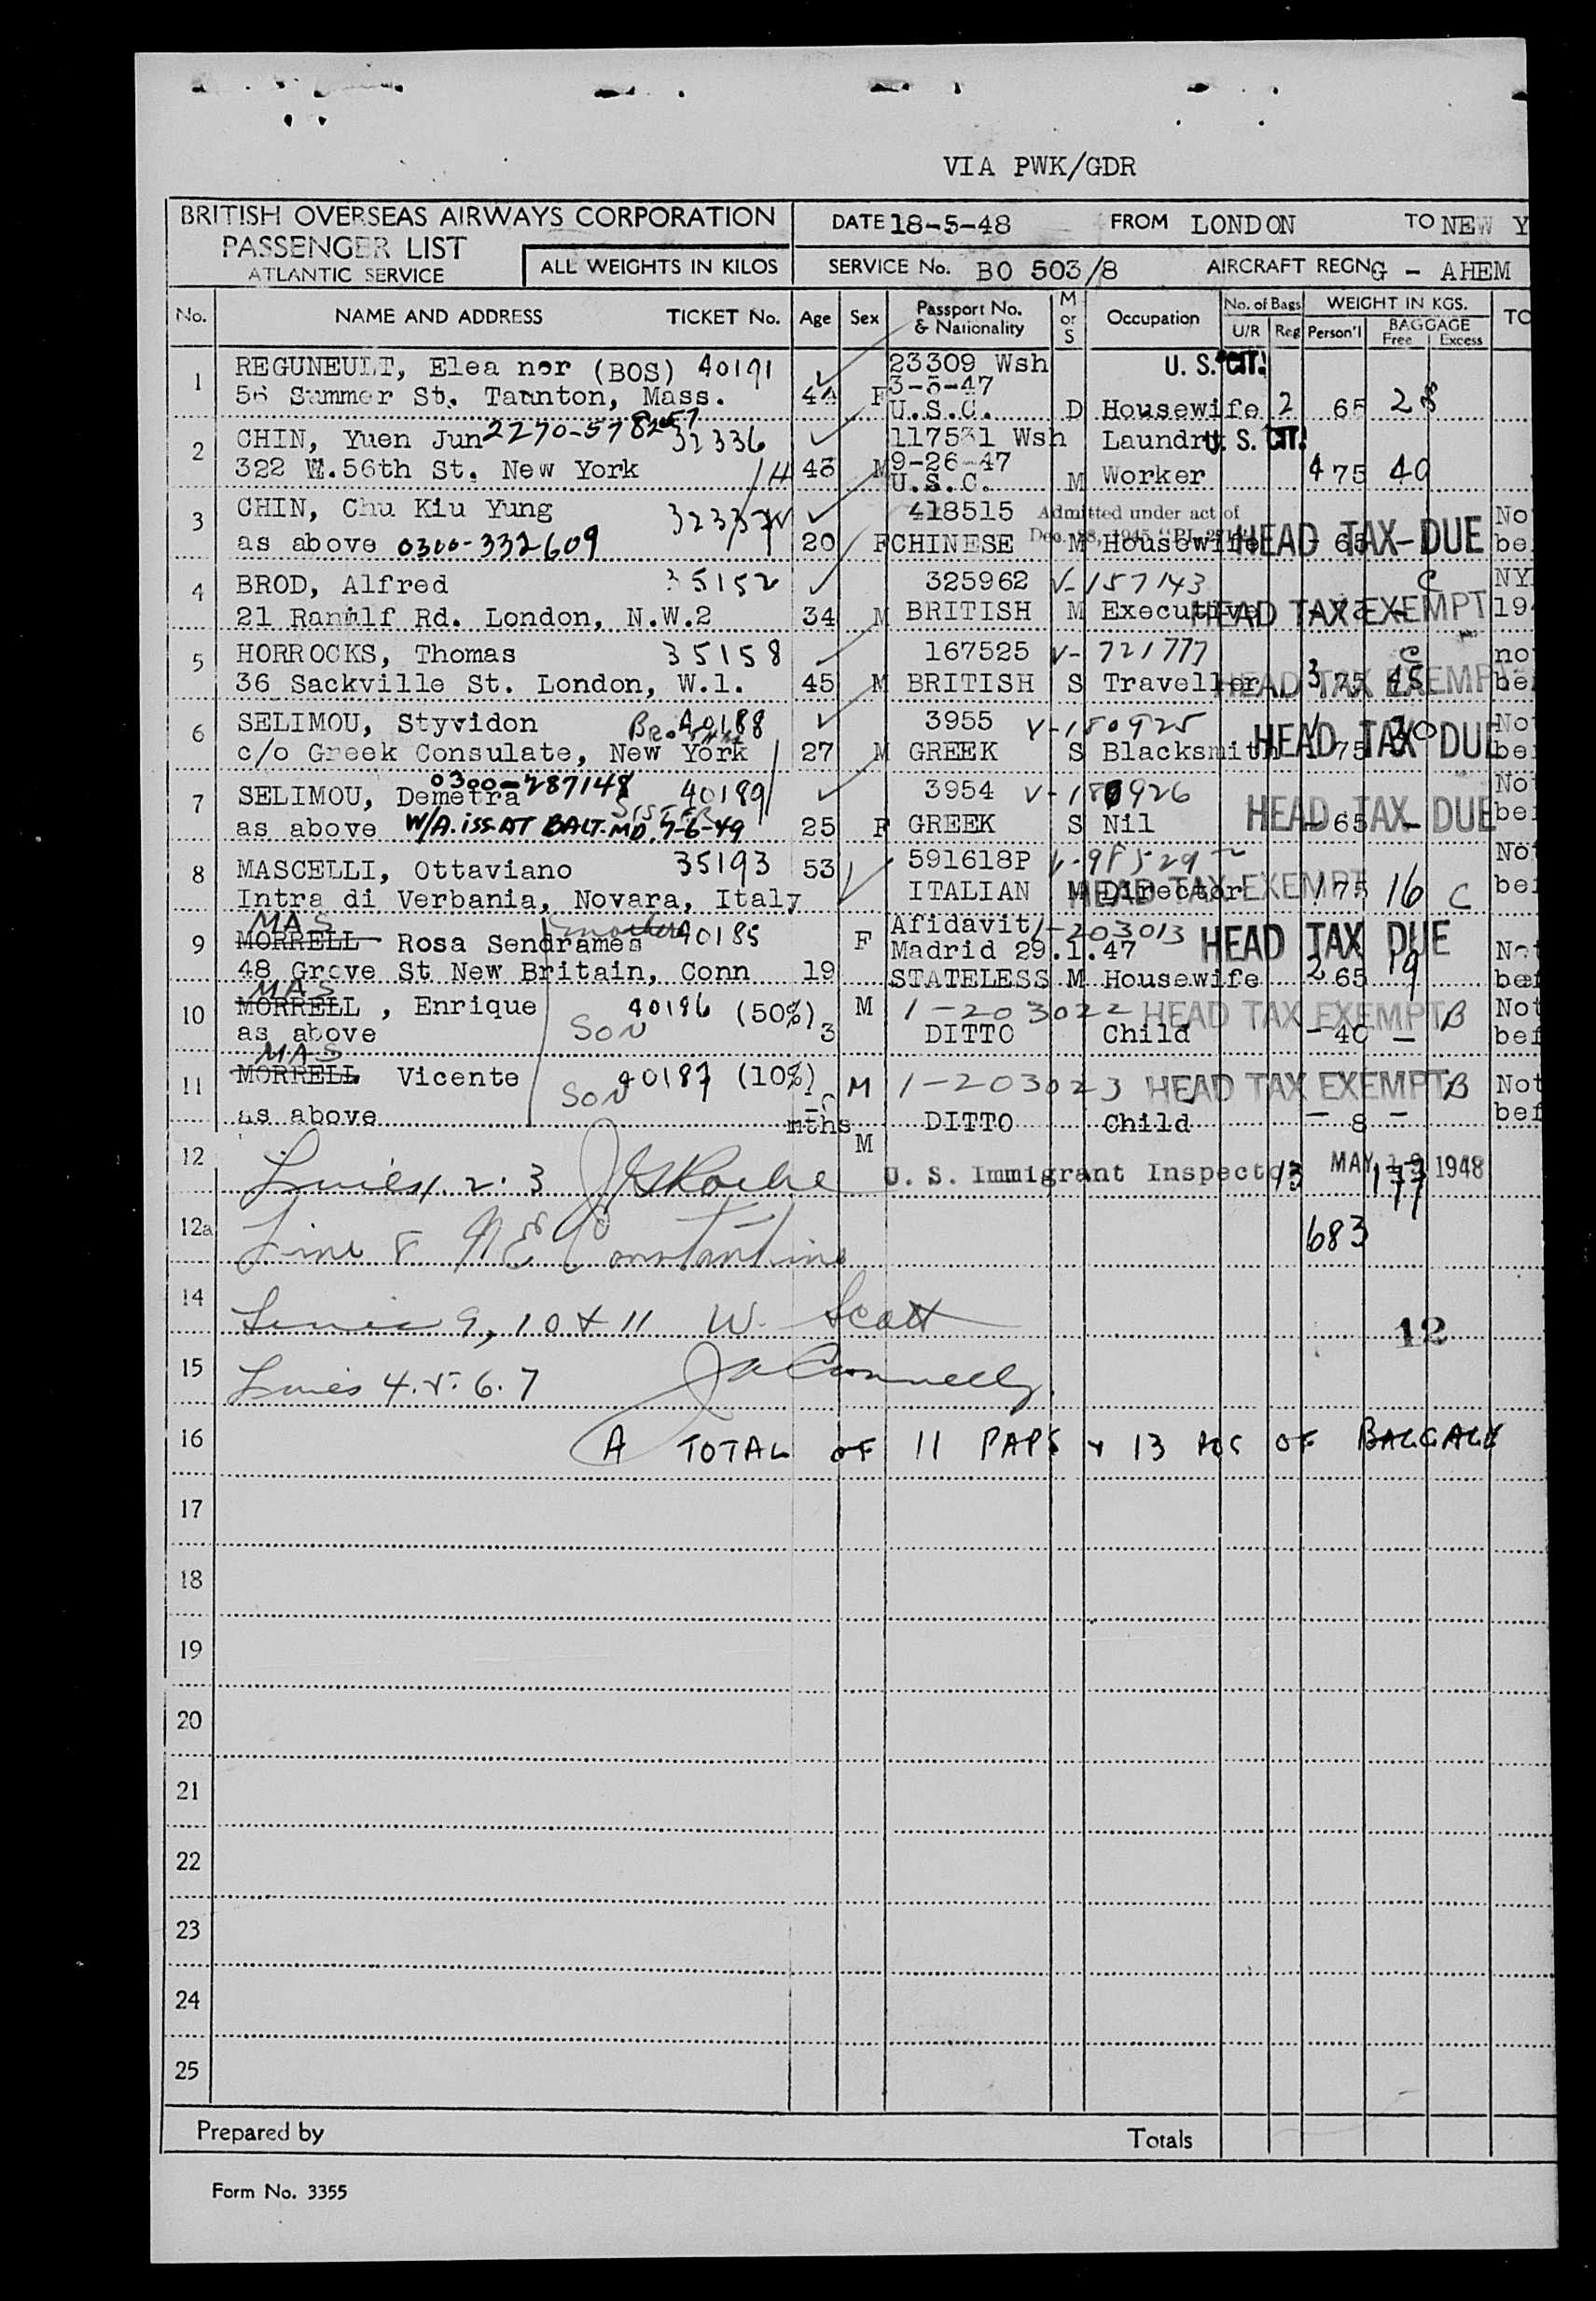 VIA PWK/GDR
BRITISH OVERSEAS AIRWAYS CORPORATION
PASSENGER LIST
ATLANTIC SERVICE
ALL WEIGHTS IN KILOS
DATE 18-5-48 FROM LONDON TO NEW Y
SERVICE No. BO 503/8 AIRCRAFT REGN G - AHEM
No. NAME AND ADDRESS TICKET No. Age Sex Passport No. & Nationality M or S Occupation No. of Bags U/R Reg WEIGHT IN KGS. Person'l BAGGAGE Free Excess TO
1 REGUNEULT, Eleanor (BOS) 40191 23309 Wsh U. S. CIT.
56 Summer St. Taunton, Mass. 44 F 3-5-47
U.S.C. D Housewife 2 65 28
2 CHIN, Yuen Jun 32336 117531 Wsh Laundry U. S. CIT.
322 W.56th St. New York /H 43 M 9-26-47
U.S.C. M Worker 4 75 40
3 CHIN, Chu Kiu Yung 32337 W 418515 Admitted under act of No
as above 0300-332609 20 F CHINESE M Housewife HEAD TAX-DUE - 65 be
4 BROD, Alfred 35152 325962 V-157143 C NY
21 Ranulf Rd. London, N.W.2 34 M BRITISH M Executive HEAD TAX EXEMPT 194
5 HORROCKS, Thomas 35158 167525 V- 721777 C no
36 Sackville St. London, W.1. 45 M BRITISH S Traveller HEAD TAX EXEMPT 3 75 45 be
6 SELIMOU, Styvidon 40188 3955 V-180925 No
c/o Greek Consulate, New York 27 M GREEK S Blacksmith HEAD TAX DUE 1 75 30 be
0300-287148
7 SELIMOU, Demetra SISTER 40189 3954 V-180926 Not
as above W/A. iss AT BALT. MD. 7-6-49 25 F GREEK S Nil HEAD TAX DUE - 65 - be
8 MASCELLI, Ottaviano 35193 53 591618P Not
Intra di Verbania, Novara, Italy ITALIAN M Director HEAD TAX EXEMPT 1 75 16 C bef
MAS
9 MORRELL Rosa Sendrames 40185 F Afidavit 1-203013
Madrid 29.1.47 HEAD TAX DUE Not
48 Grove St New Britain, Conn 19 STATELESS M Housewife 2 65 19 bef
MAS
10 MORRELL , Enrique 40186 (50%) M 1-203022 HEAD TAX EXEMPT B Not
as above SON 3 DITTO Child - 40 - bef
MAS
11 MORRELL Vicente 40187 (10%) M 1-203023 HEAD TAX EXEMPT B Not
as above SON mths DITTO Child - 8 - bef
M
12 Lines 1. 2. 3 U. S. Immigrant Inspector 13 MAY 19 1948
177
12a Line 8 N E Constantine 683
14 Lines 9, 10 & 11 W. Scott 12
15 Lines 4. 5. 6. 7 J A Connelly
16 A TOTAL OF 11 PAPS & 13 PCS OF BAGGAGE
17
18
19
20
21
22
23
24
25
Prepared by Totals
Form No. 3355